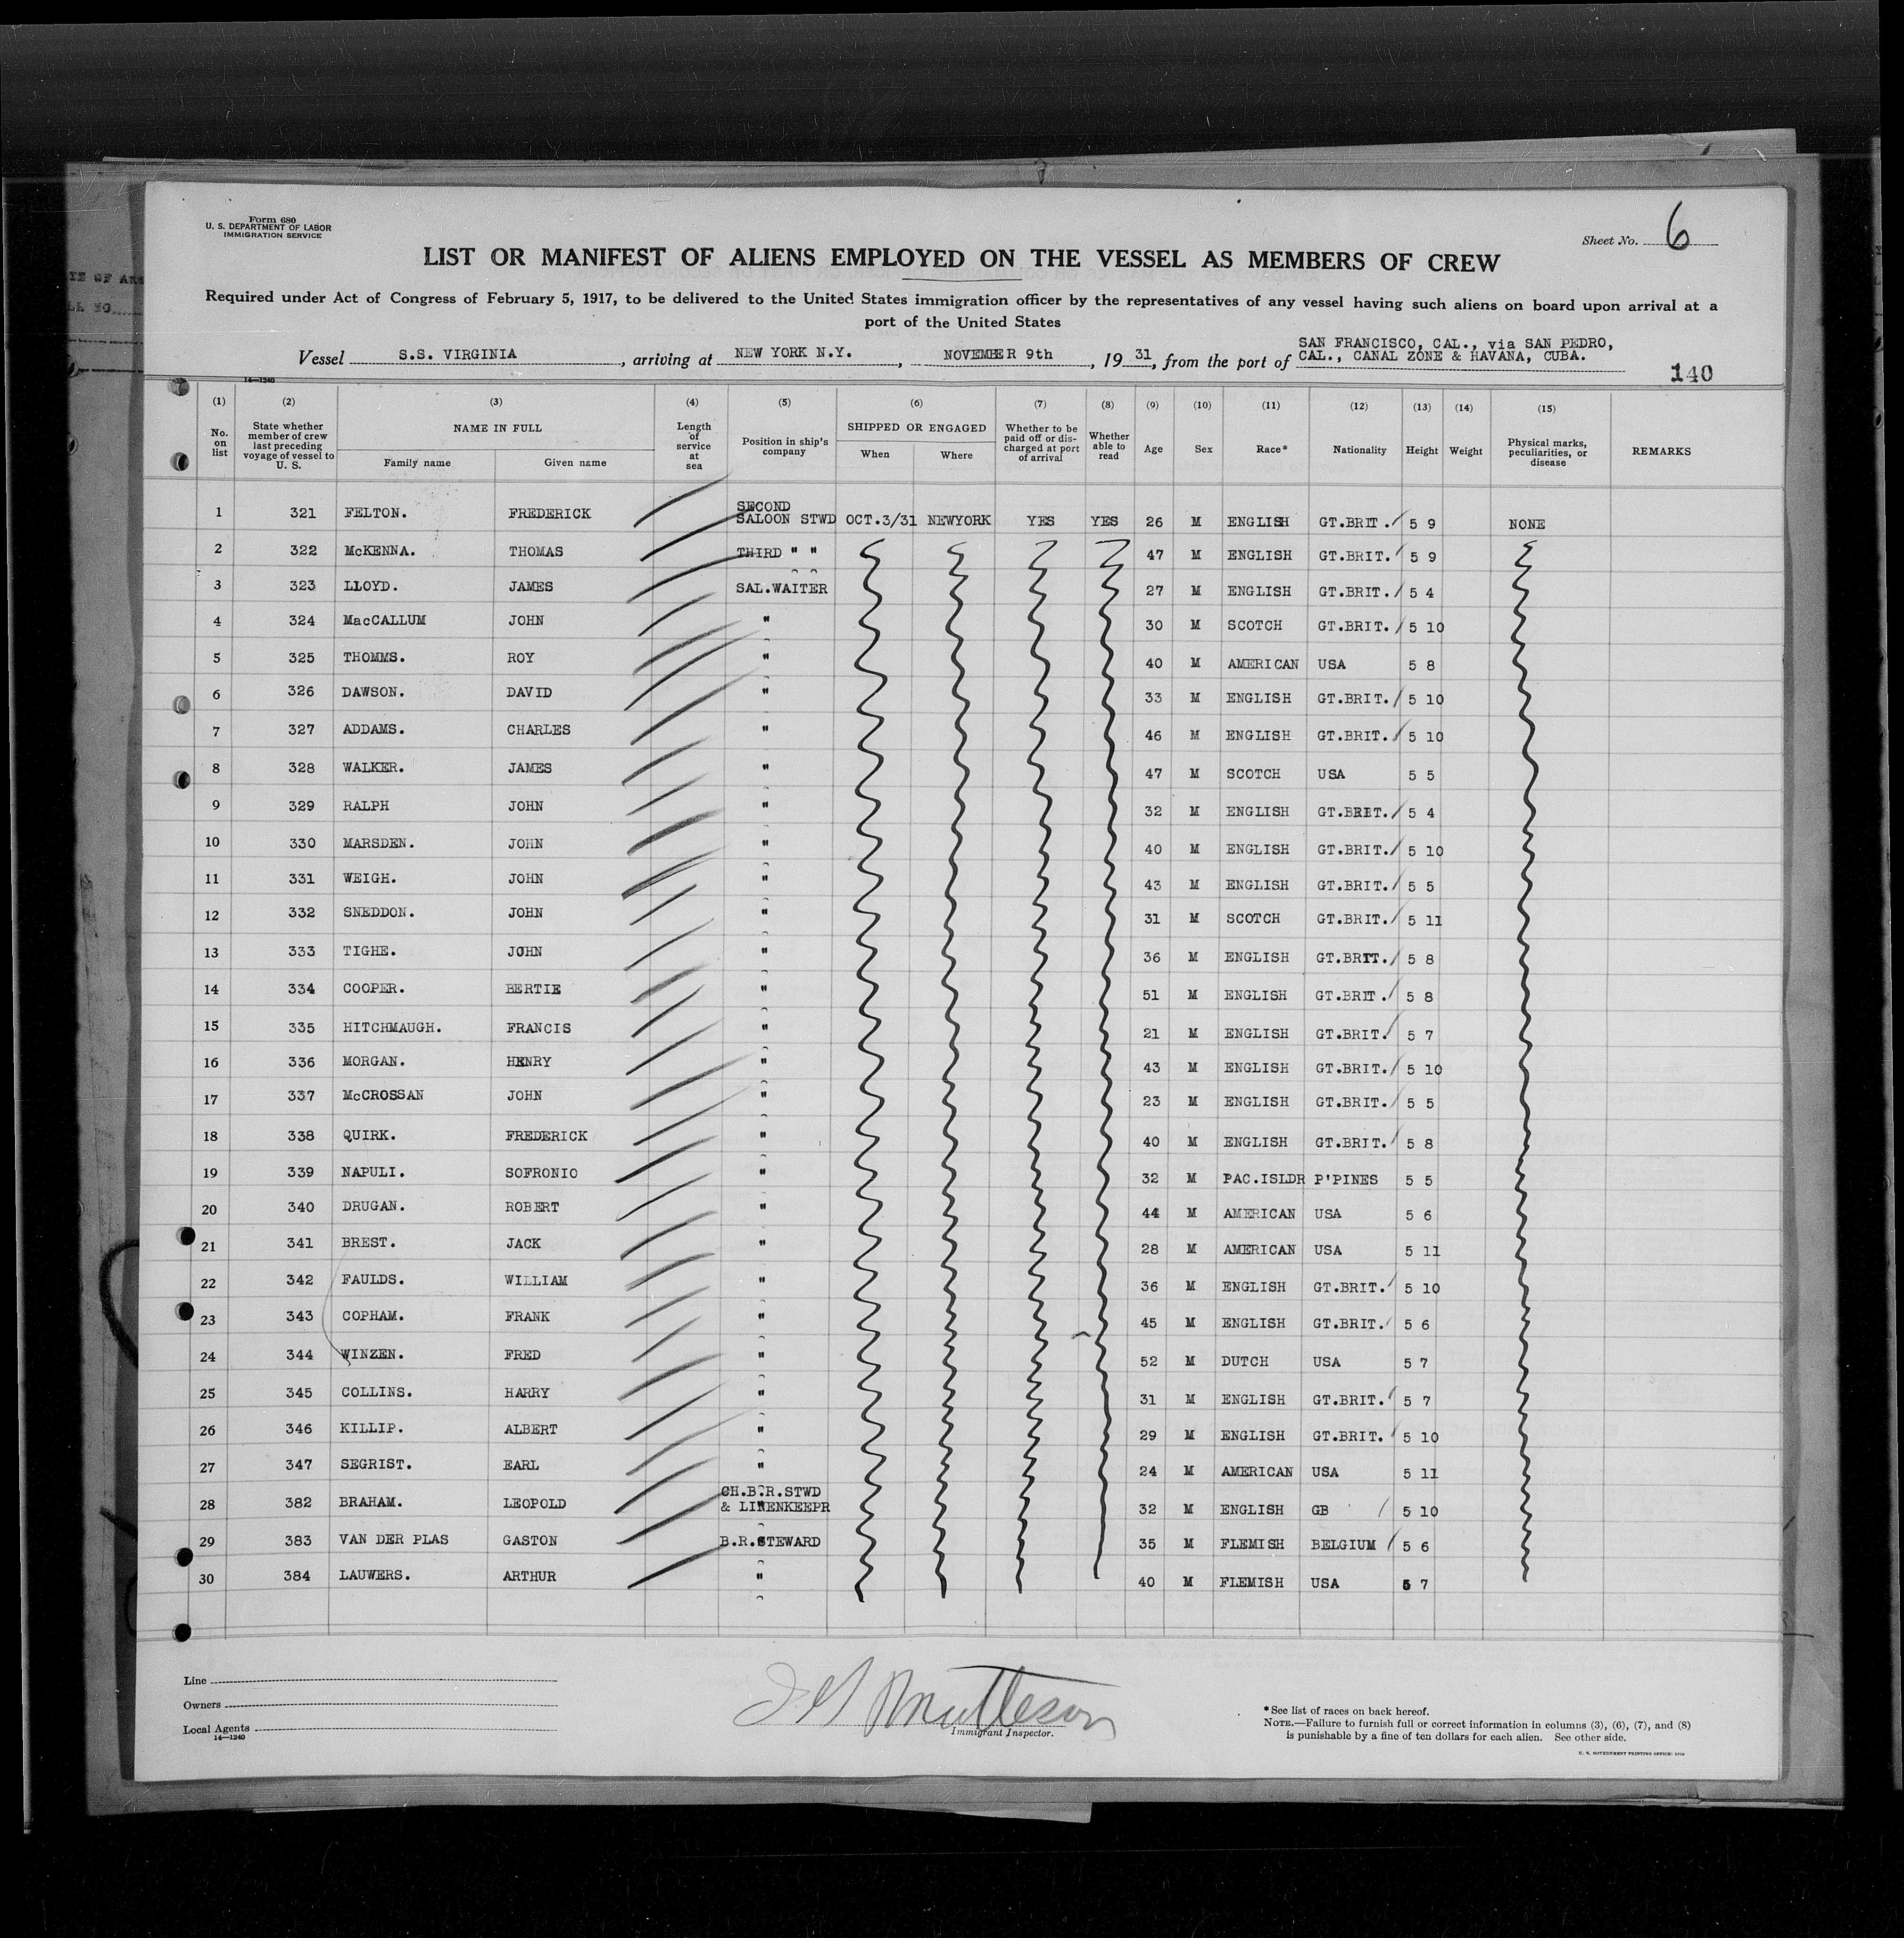 Form 680
U. S. DEPARTMENT OF LABOR
IMMIGRATION SERVICE
Sheet No. 6
LIST OR MANIFEST OF ALIENS EMPLOYED ON THE VESSEL AS MEMBERS OF CREW
Required under Act of Congress of February 5, 1917, to be delivered to the United States immigration officer by the representatives of any vessel having such aliens on board upon arrival at a
port of the United States
Vessel S.S. VIRGINIA, arriving at NEW YORK N.Y., NOVEMBER 9th, 19 31, from the port of SAN FRANCISCO, CAL., via SAN PEDRO,
CAL., CANAL ZONE & HAVANA, CUBA.
140
14—1240
(1) (2) (3) (4) (5) (6) (7) (8) (9) (10) (11) (12) (13) (14) (15)
No. on list
State whether member of crew last preceding voyage of vessel to U. S.
NAME IN FULL
Family name Given name
Length of service at sea
Position in ship's company
SHIPPED OR ENGAGED
When Where
Whether to be paid off or discharged at port of arrival
Whether able to read
Age Sex Race* Nationality Height Weight
Physical marks, peculiarities, or disease
REMARKS
1 321 FELTON. FREDERICK SECOND SALOON STWD OCT.3/31 NEWYORK YES YES 26 M ENGLISH GT.BRIT. 5 9 NONE
2 322 McKENNA. THOMAS THIRD " " 47 M ENGLISH GT.BRIT. 5 9
3 323 LLOYD. JAMES SAL.WAITER 27 M ENGLISH GT.BRIT. 5 4
4 324 MacCALLUM JOHN " 30 M SCOTCH GT.BRIT. 5 10
5 325 THOMMS. ROY " 40 M AMERICAN USA 5 8
6 326 DAWSON. DAVID " 33 M ENGLISH GT.BRIT. 5 10
7 327 ADDAMS. CHARLES " 46 M ENGLISH GT.BRIT. 5 10
8 328 WALKER. JAMES " 47 M SCOTCH USA 5 5
9 329 RALPH JOHN " 32 M ENGLISH GT.BRIT. 5 4
10 330 MARSDEN. JOHN " 40 M ENGLISH GT.BRIT. 5 10
11 331 WEIGH. JOHN " 43 M ENGLISH GT.BRIT. 5 5
12 332 SNEDDON. JOHN " 31 M SCOTCH GT.BRIT. 5 11
13 333 TIGHE. JOHN " 36 M ENGLISH GT.BRIT. 5 8
14 334 COOPER. BERTIE " 51 M ENGLISH GT.BRIT. 5 8
15 335 HITCHMAUGH. FRANCIS " 21 M ENGLISH GT.BRIT. 5 7
16 336 MORGAN. HENRY " 43 M ENGLISH GT.BRIT. 5 10
17 337 McCROSSAN JOHN " 23 M ENGLISH GT.BRIT. 5 5
18 338 QUIRK. FREDERICK " 40 M ENGLISH GT.BRIT. 5 8
19 339 NAPULI. SOFRONIO " 32 M PAC.ISLDR P'PINES 5 5
20 340 DRUGAN. ROBERT " 44 M AMERICAN USA 5 6
21 341 BREST. JACK " 28 M AMERICAN USA 5 11
22 342 FAULDS. WILLIAM " 36 M ENGLISH GT.BRIT. 5 10
23 343 COPHAM. FRANK " 45 M ENGLISH GT.BRIT. 5 6
24 344 WINZEN. FRED " 52 M DUTCH USA 5 7
25 345 COLLINS. HARRY " 31 M ENGLISH GT.BRIT. 5 7
26 346 KILLIP. ALBERT " 29 M ENGLISH GT.BRIT. 5 10
27 347 SEGRIST. EARL " 24 M AMERICAN USA 5 11
28 382 BRAHAM. LEOPOLD CH.B.R.STWD & LINENKEEPR 32 M ENGLISH GB 5 10
29 383 VAN DER PLAS GASTON B.R.STEWARD 35 M FLEMISH BELGIUM 5 6
30 384 LAUWERS. ARTHUR " 40 M FLEMISH USA 5 7
Line
Owners
Local Agents
14—1240
Immigrant Inspector.
*See list of races on back hereof.
NOTE.—Failure to furnish full or correct information in columns (3), (6), (7), and (8)
is punishable by a fine of ten dollars for each alien. See other side.